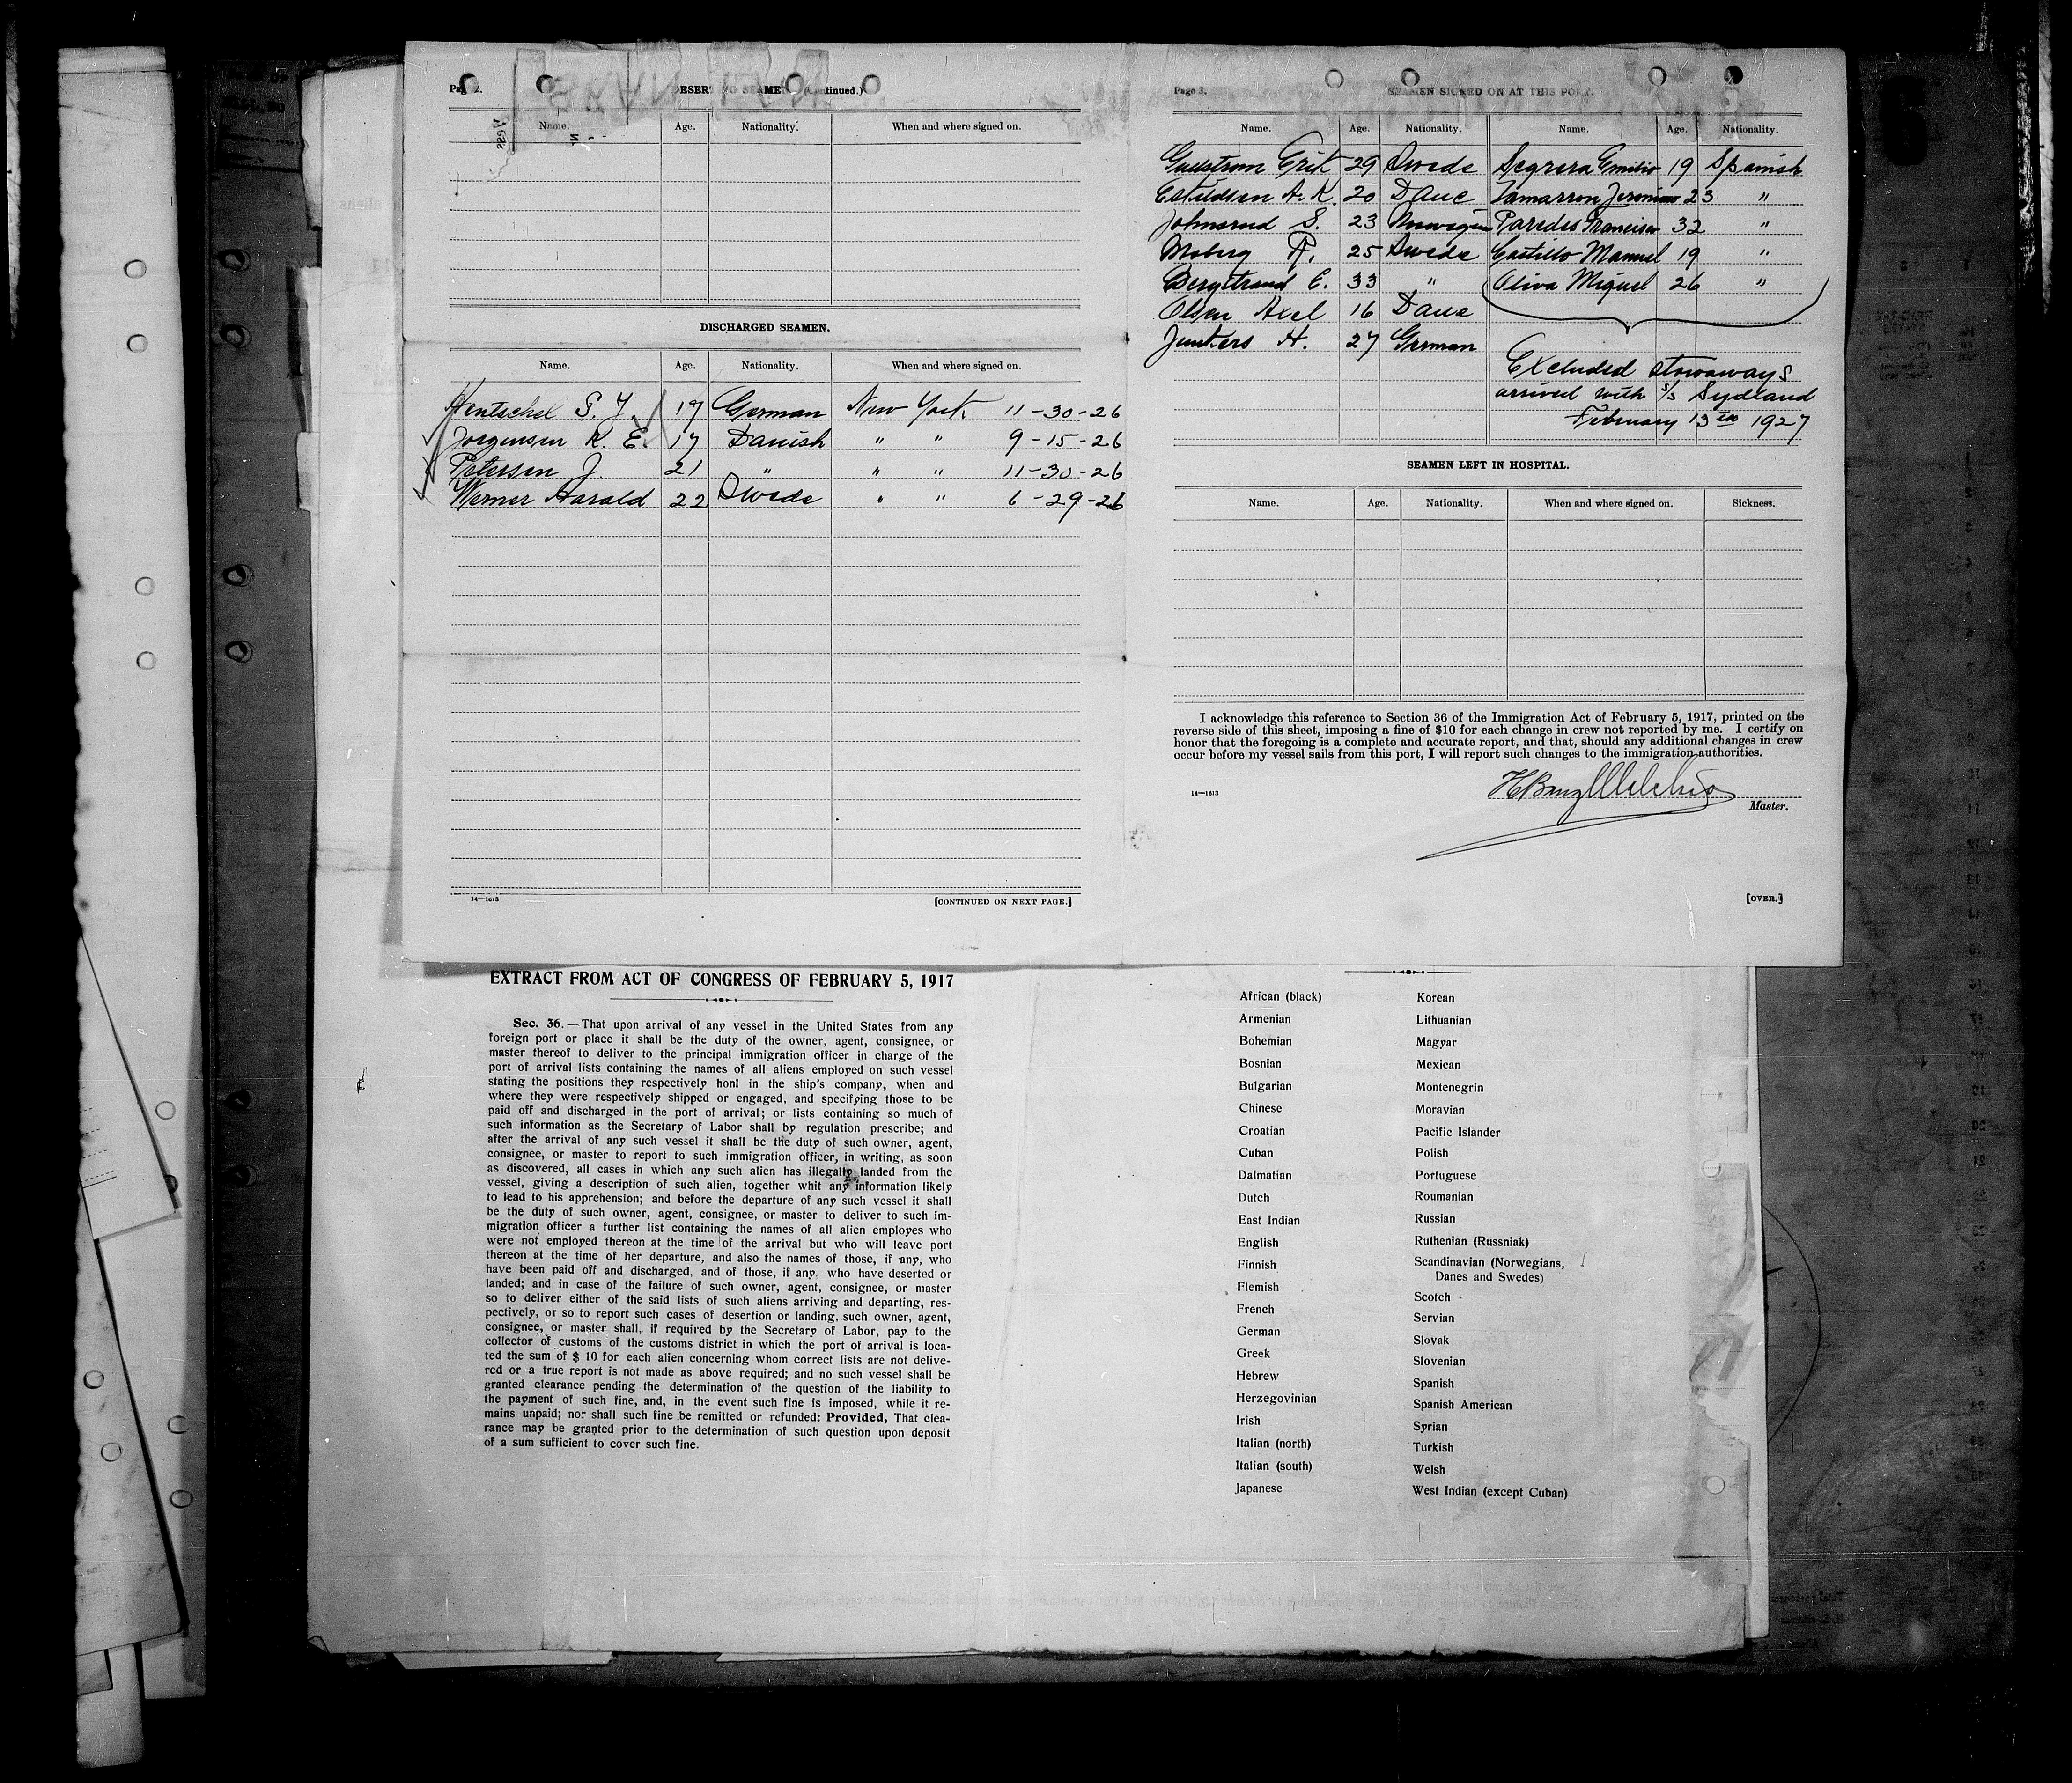 DESERTING SEAMEN (Continued.)
Name. Age. Nationality. When and where signed on.
DISCHARGED SEAMEN.
Name. Age. Nationality. When and where signed on.
Hentschel 17 German New York 11-30-26
Jorgensen K. E. 17 Danish " " 9-15-26
Petersen J. 21 " " " 11-30-26
Werner Harald 22 Swede " " 6-29-26
14—1613
[CONTINUED ON NEXT PAGE.]
Page 3.
SEAMEN SIGNED ON AT THIS PORT.
Name. Age. Nationality. Name. Age. Nationality.
29 Swede Segrera Emilio 19 Spanish
A. K. 20 Dane Zamarron Jeronimo 23 "
Johnsrud S. 23 Norwegian Paredes Francisco 32 "
Moberg R. 25 Swede Castillo Manuel 19 "
Bergstrand E. 33 " Oliva Miguel 26 "
Olsen Axel 16 Dane
Junkers H. 27 German
Excluded stowaways
arrived with s/s Sydland
February 13th 1927
SEAMEN LEFT IN HOSPITAL.
Name. Age. Nationality. When and where signed on. Sickness.
I acknowledge this reference to Section 36 of the Immigration Act of February 5, 1917, printed on the
reverse side of this sheet, imposing a fine of $10 for each change in crew not reported by me. I certify on
honor that the foregoing is a complete and accurate report, and that, should any additional changes in crew
occur before my vessel sails from this port, I will report such changes to the immigration authorities.
14—1613
Master.
[OVER.]
EXTRACT FROM ACT OF CONGRESS OF FEBRUARY 5, 1917
Sec. 36.—That upon arrival of any vessel in the United States from any
foreign port or place it shall be the duty of the owner, agent, consignee, or
master thereof to deliver to the principal immigration officer in charge of the
port of arrival lists containing the names of all aliens employed on such vessel
stating the positions they respectively honl in the ship's company, when and
where they were respectively shipped or engaged, and specifying those to be
paid off and discharged in the port of arrival; or lists containing so much of
such information as the Secretary of Labor shall by regulation prescribe; and
after the arrival of any such vessel it shall be the duty of such owner, agent,
consignee, or master to report to such immigration officer, in writing, as soon
as discovered, all cases in which any such alien has illegally landed from the
vessel, giving a description of such alien, together whit any information likely
to lead to his apprehension; and before the departure of any such vessel it shall
be the duty of such owner, agent, consignee, or master to deliver to such im-
migration officer a further list containing the names of all alien employes who
were not employed thereon at the time of the arrival but who will leave port
thereon at the time of her departure, and also the names of those, if any, who
have been paid off and discharged, and of those, if any, who have deserted or
landed; and in case of the failure of such owner, agent, consignee, or master
so to deliver either of the said lists of such aliens arriving and departing, res-
pectively, or so to report such cases of desertion or landing, such owner, agent,
consignee, or master shall, if required by the Secretary of Labor, pay to the
collector of customs of the customs district in which the port of arrival is loca-
ted the sum of $ 10 for each alien concerning whom correct lists are not delive-
red or a true report is not made as above required; and no such vessel shall be
granted clearance pending the determination of the question of the liability to
the payment of such fine, and, in the event such fine is imposed, while it re-
mains unpaid; nor shall such fine be remitted or refunded: Provided, That clea-
rance may be granted prior to the determination of such question upon deposit
of a sum sufficient to cover such fine.
African (black)
Armenian
Bohemian
Bosnian
Bulgarian
Chinese
Croatian
Cuban
Dalmatian
Dutch
East Indian
English
Finnish
Flemish
French
German
Greek
Hebrew
Herzegovinian
Irish
Italian (north)
Italian (south)
Japanese
Korean
Lithuanian
Magyar
Mexican
Montenegrin
Moravian
Pacific Islander
Polish
Portuguese
Roumanian
Russian
Ruthenian (Russniak)
Scandinavian (Norwegians,
Danes and Swedes)
Scotch
Servian
Slovak
Slovenian
Spanish
Spanish American
Syrian
Turkish
Welsh
West Indian (except Cuban)